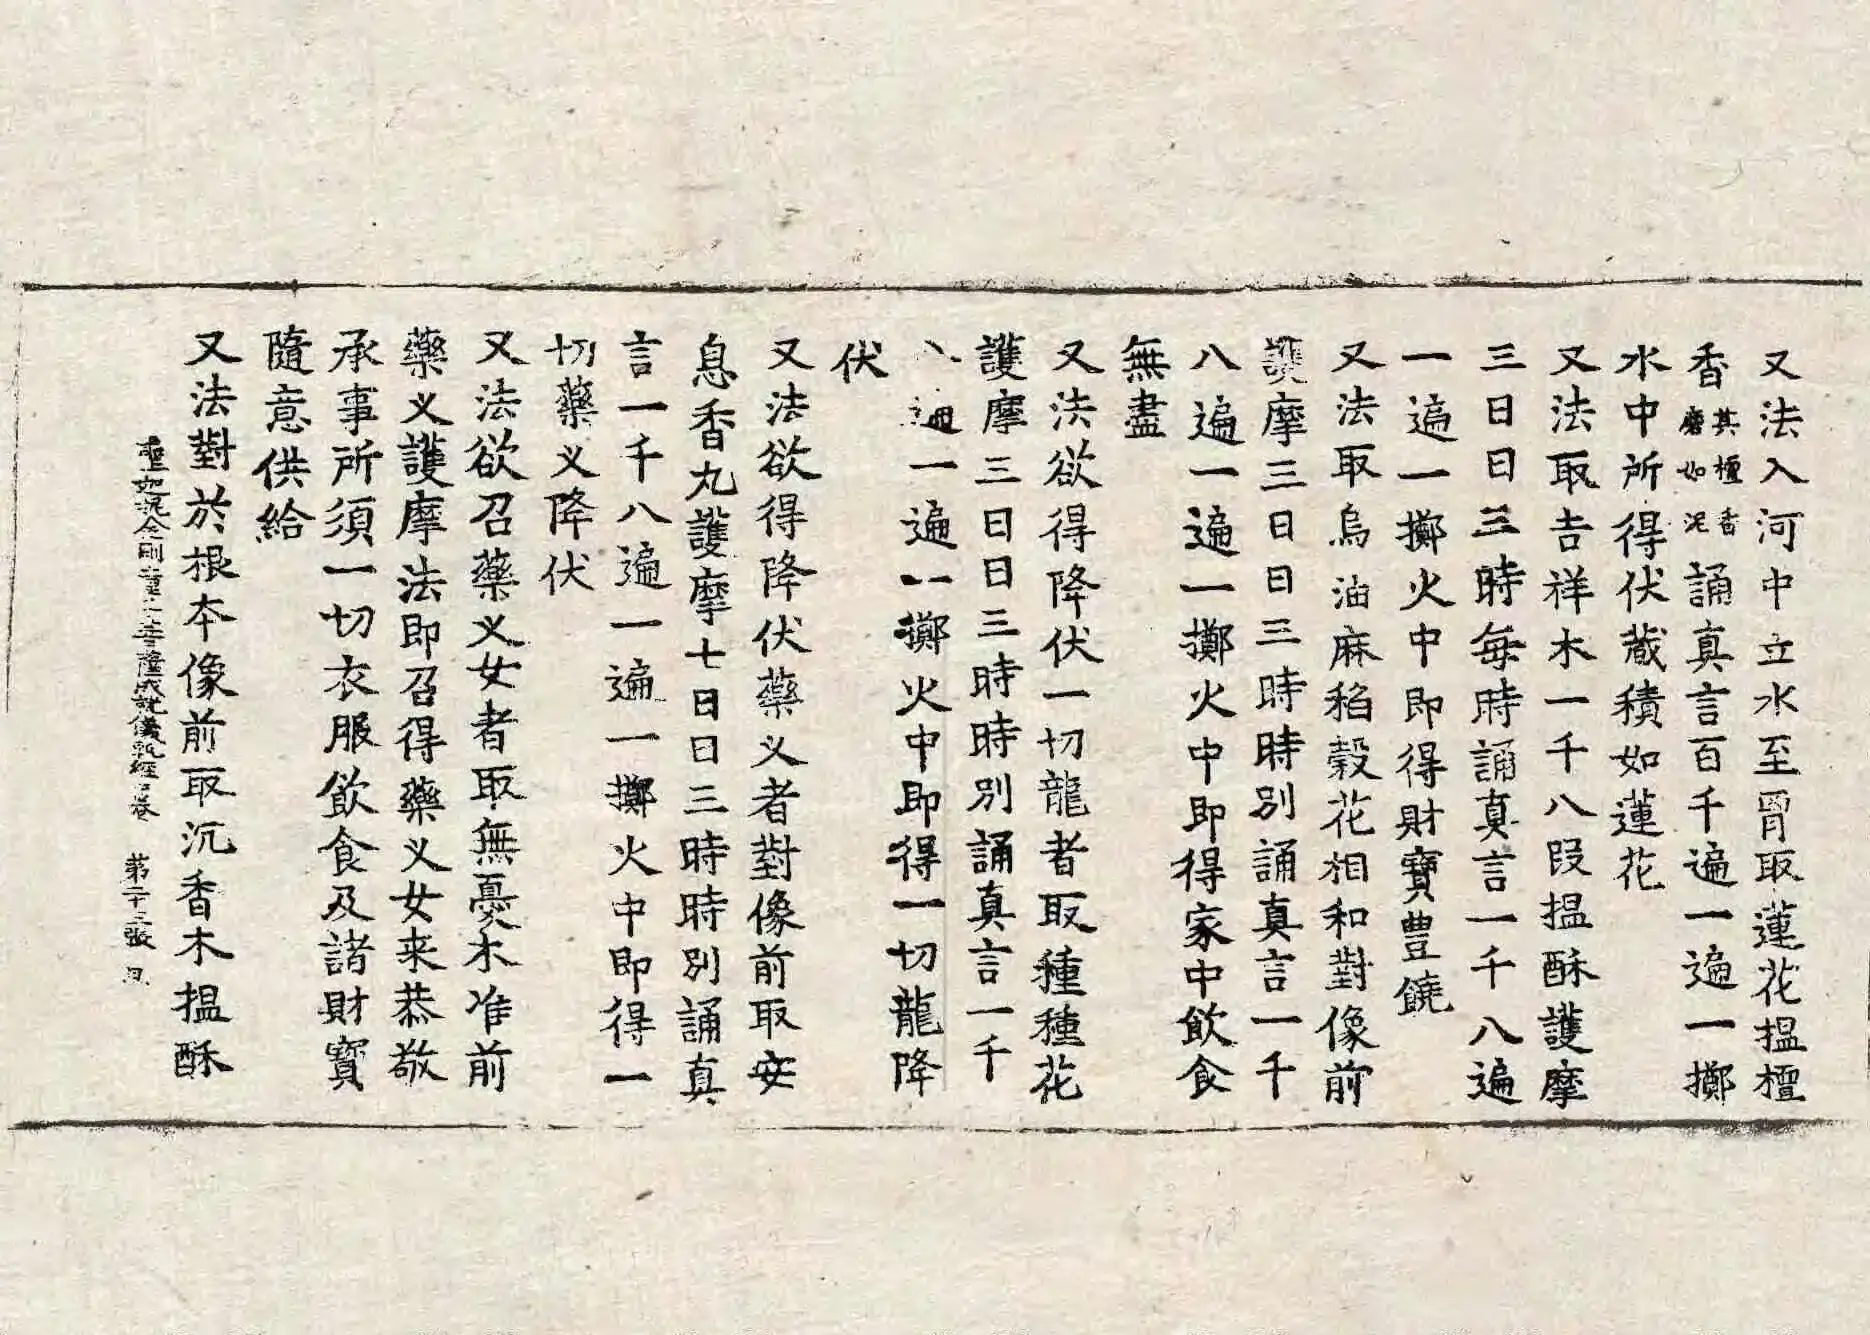 又法入河中立水至胷取蓮花搵檀
香其檀香磨如泥誦真言百千遍一遍一擲
水中所得伏藏積如蓮花
又法取吉祥木一千八段搵酥護摩
三日日三時每時誦真言一千八遍
一遍一擲火中即得財寶豊饒
又法取烏油麻稻糓花相和對像前
護摩三日日三時時別誦真言一千
八遍一遍一擲火中即得家中飲食
無盡
又法欲得降伏一切龍者取種種花
護摩三日日三時時別誦真言一千
八遍一遍一擲火中即得一切龍降
伏
又法欲得降伏藥义者對像前取安
息香丸護摩七日日三時時別誦真
言一千八遍一遍一擲火中即得一
切藥义降伏
又法欲召藥义女者取無憂木准前
藥义護摩法即召得藥义女来恭敬
承事所須一切衣服飲食及諸財寶
隨意供給
聖如泥金剛童子菩薩成就儀軌經 卷 第二十三張
又法對於根本像前取沉香木搵酥